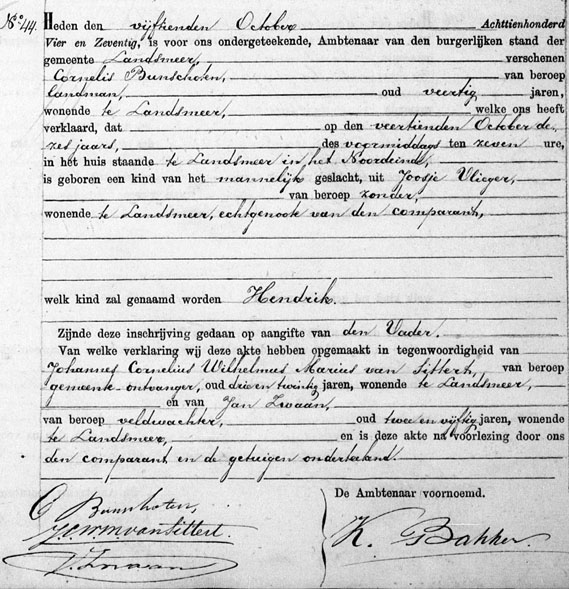 No. 44. Heden den vijftienden October Achttienhonderd
Vier en Zeventig, is voor ons ondergeteekende, Ambtenaar van den burgerlijken stand der
gemeente Landsmeer, verschenen
Cornelis Bunschoten, van beroep
landman, oud veertig jaren,
wonende te Landsmeer, welke ons heeft
verklaard, dat op den veertienden October de-
zes jaars, des voormiddags ten zeven ure,
in het huis staande te Landsmeer in het Noordeinde,
is geboren een kind van het mannelijk geslacht, uit Joosje Vlieger,
van beroep zonder,
wonende te Landsmeer, echtgenoote van den comparant,
welk kind zal genaamd worden Hendrik.
Zijnde deze inschrijving gedaan op aangifte van den Vader.
Van welke verklaring wij deze akte hebben opgemaakt in tegenwoordigheid van
Johannes Cornelius Wilhelmus Marius van Sittert, van beroep
gemeente-ontvanger, oud drie en twintig jaren, wonende te Landsmeer,
en van Jan Zwaan,
van beroep veldwachter, oud twee en vijftig jaren, wonende
te Landsmeer, en is deze akte na voorlezing door ons
den comparant en de getuigen onderteekend.
De Ambtenaar voornoemd.
C Bunschoten,
J.C.W.M. van Sittert.
K. Bakker.
J. Zwaan